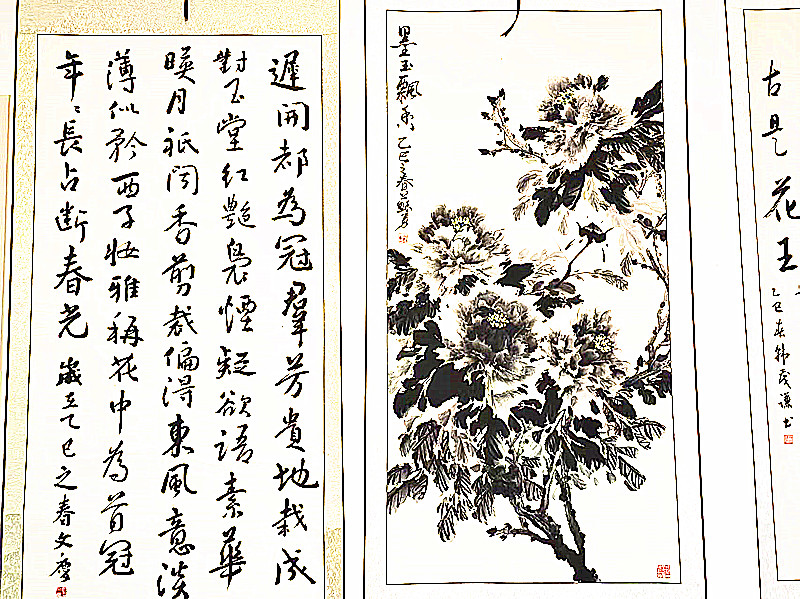 遲開都為冠羣芳貴地栽成
對玉堂紅艷裊煙疑欲語素華
暎月祇聞香剪裁偏得東風意淡
薄似矜西子妝雅稱花中為首冠
年〻長占斷春光 歲在乙巳之春文慶
墨玉飄香 乙巳之春
古是花王
乙巳春韩茂源书